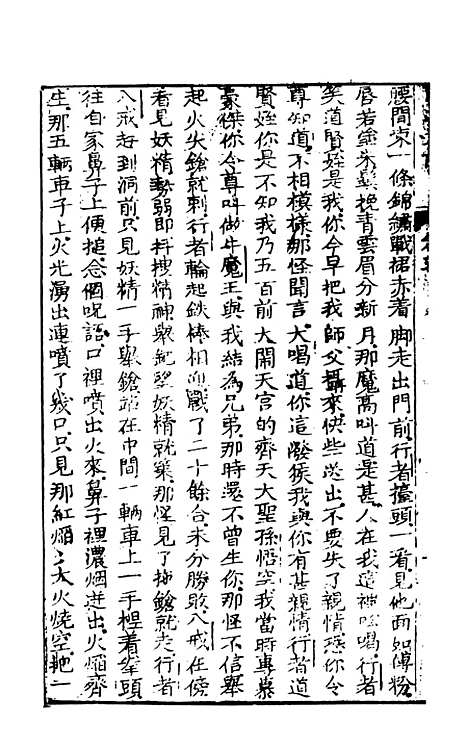 腰間束一條錦繡戰裙赤着脚走出門前行者擡頭一看見他面如傅粉
唇若塗朱鬓挽青雲眉分新月那魔高叫道是甚人在我這裡吆喝行者
笑道賢姪是我你今早把我師父攝來快些送出不要失了親情恐你令
尊知道不相模樣那怪聞言大喝道你這潑猴我與你有甚親情行者道
賢姪你是不知我乃五百前大閙天宮的齊天大聖孫悟空我當時專慕
豪傑你令尊叫做牛魔王與我結為兄弟那時還不曾生你那怪不信舉
起火尖鎗就刺行者輪起鉄棒相迎戰了二十餘合未分勝敗八戒在傍
看見妖精勢弱即抖搜精神舉鈀望妖精就築那怪見了拖鎗就走行者
八戒赶到洞前只見妖精一手舉鎗站在中間一輌車上一手捏着拳頭
往自家鼻子上便搥念個呪語口裡噴出火來鼻子裡濃烟迸出火焰齊
生那五輌車子上火光湧出連噴了幾口只見那紅焰〻大火燒空